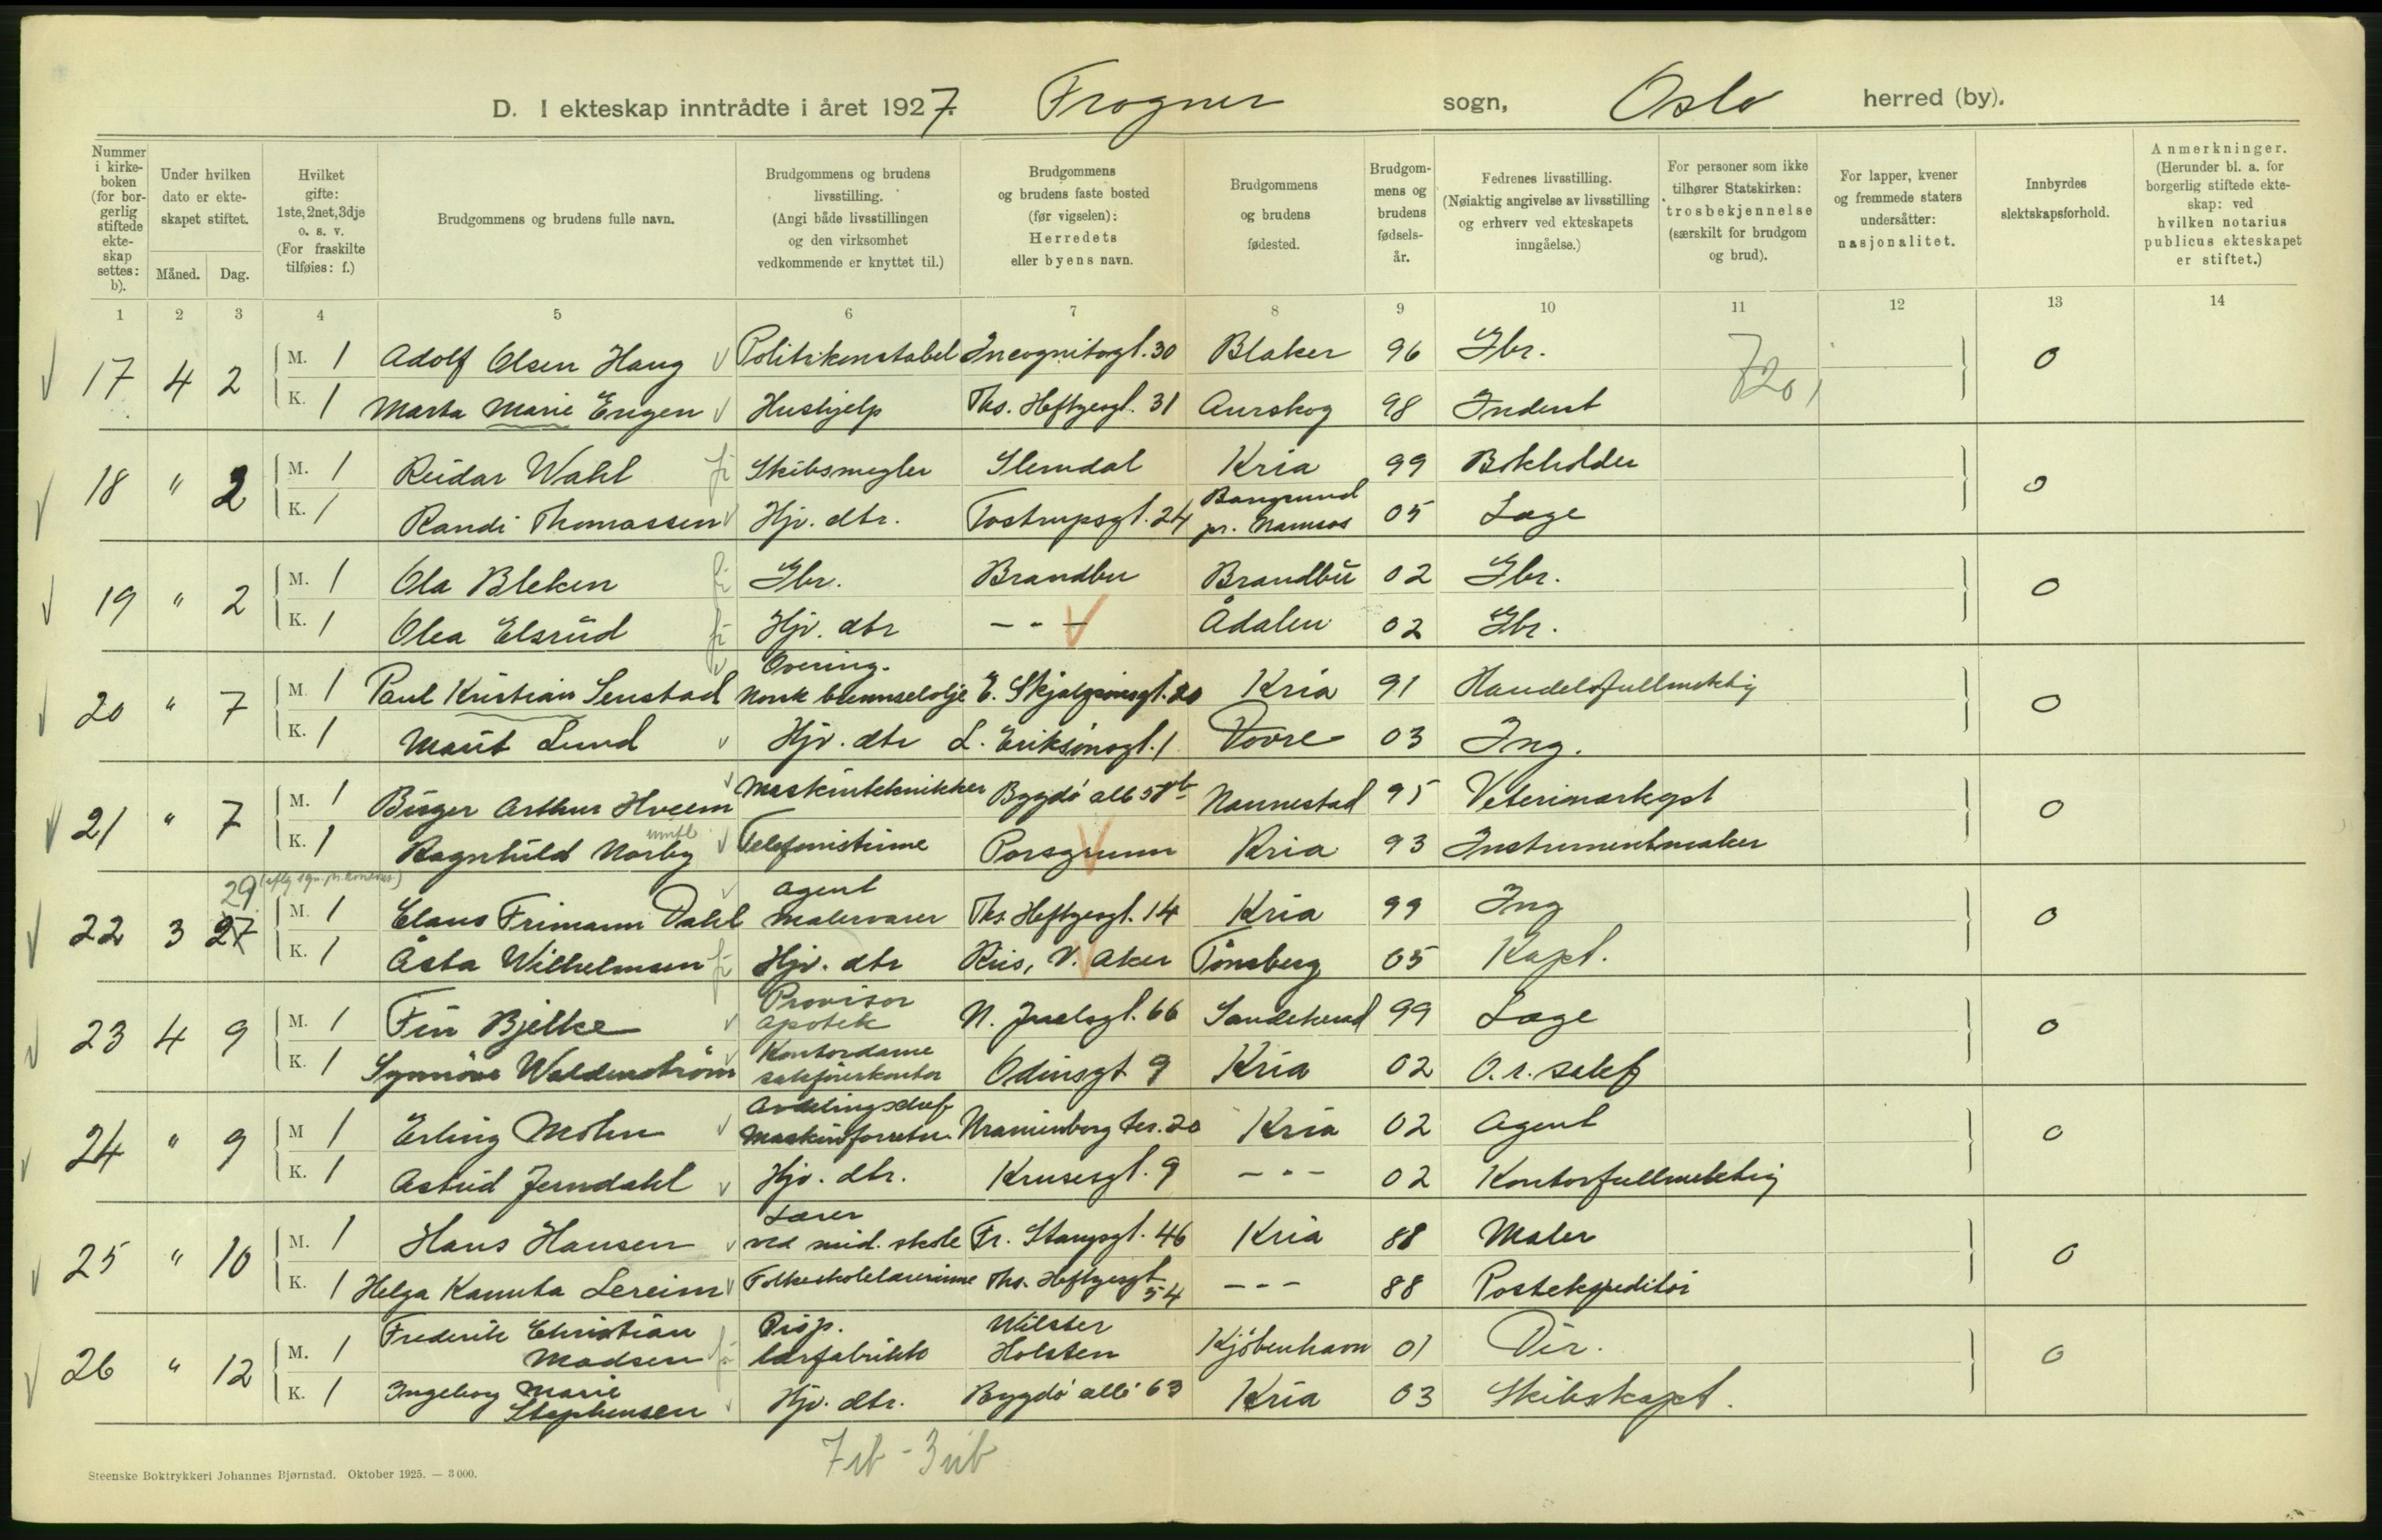 D. I ekteskap inntrådte i året 1927. Frogner sogn, Oslo herred (by).
Nummer i kirke-boken (for bor-gerlig stiftede ekte-skap settes: b).
Under hvilken dato er ekte-skapet stiftet.
Måned. Dag.
Hvilket gifte: 1ste, 2net, 3dje o. s. v. (For fraskilte tilføies: f.)
Brudgommens og brudens fulle navn.
Brudgommens og brudens livsstilling. (Angi både livsstillingen og den virksomhet vedkommende er knyttet til.)
Brudgommens og brudens faste bosted (før vigselen): Herredets eller byens navn.
Brudgommens og brudens fødested.
Brudgom-mens og brudens fødsels-år.
Fedrenes livsstilling. (Nøiaktig angivelse av livsstilling og erhverv ved ekteskapets inngåelse.)
For personer som ikke tilhører Statskirken: trosbekjennelse (særskilt for brudgom og brud).
For lapper, kvener og fremmede staters undersåtter: nasjonalitet.
Innbyrdes slektskapsforhold.
Anmerkninger. (Herunder bl. a. for borgerlig stiftede ekte-skap: ved hvilken notarius publicus ekteskapet er stiftet.)
1 2 3 4 5 6 7 8 9 10 11 12 13 14
17 4 2 M. 1 Adolf Olsen Haug Politikonstabel Incognitogt. 30 Blaker 96 Gbr. 0
K. 1 Marta Marie Engen Hushjelp Ths. Heftyesgt. 31 Aurskog 98 Inderst
18 " 2 M. 1 Reidar Wahl Skibsmegler Slemdal Kria 99 Bokholder 0
K. 1 Randi Thomassen Hjv. dtr. Tostrupsgt. 24 Bangsund pr. Namsos 05 Læge
19 " 2 M. 1 Ola Bleken Gbr. Brandbu Brandbu 02 Gbr. 0
K. 1 Olea Elsrud Hjv. dtr - " - Ådalen 02 Gbr.
20 " 7 M. 1 Paul Kristian Senstad Overing. Norsk brennselolje E. Skjalgsønsgt. 20 Kria 91 Handelsfullmektig 0
K. 1 Marit Lund Hjv. dtr L. Eriksönsgt. 1 Dovre 03 Ing.
21 " 7 M. 1 Birger Arthur Hveem Maskintekniker Bygdö allé 58 Nannestad 95 Veterinærkapt 0
K. 1 Ragnhild Norby Telefonistinne Porsgrunn Kria 93 Instrumentmaker
22 3 27 29 M. 1 Claus Frimann Dahl Agent Malervarer Ths. Heftyesgt. 14 Kria 99 Ing 0
K. 1 Åsta Wilhelmsen Hjv. dtr Ris, V. Aker Tönsberg 05 Kapt.
23 4 9 M. 1 Fin Bjelke Provisor apotek N. Juelsgt. 66 Sandeherad 99 Læge 0
K. 1 Synnöve Waldenström Kontordame sakförerkontor Odinsgt 9 Kria 02 O.r. sakf
24 " 9 M 1 Erling Mohn Avdelingschef Maskinforretn. Uranienborg ter. 20 Kria 02 Agent 0
K. 1 Astrid Jerndahl Hjv. dtr. Krusesgt. 9 - " - 02 Kontorfullmektig
25 " 10 M. 1 Hans Hansen Lærer ved mid. skole Fr. Stangsgt. 46 Kria 88 Maler 0
K. 1 Helga Kamita Lereim Folkeskolelærerinne Ths. Heftyesgt 54 - " - 88 Postekspeditör
26 " 12 M. 1 Frederik Christian Madsen Disp. lærfabrikk Wilster Holsten Kjöbenhavn 01 Dir. 0
K. 1 Ingeborg Marie Stephensen Hjv. dtr. Bygdö allé 63 Kria 03 Skibskapt.
7 ib - 3 uib
Steenske Boktrykkeri Johannes Bjørnstad. Oktober 1925. — 3 000.